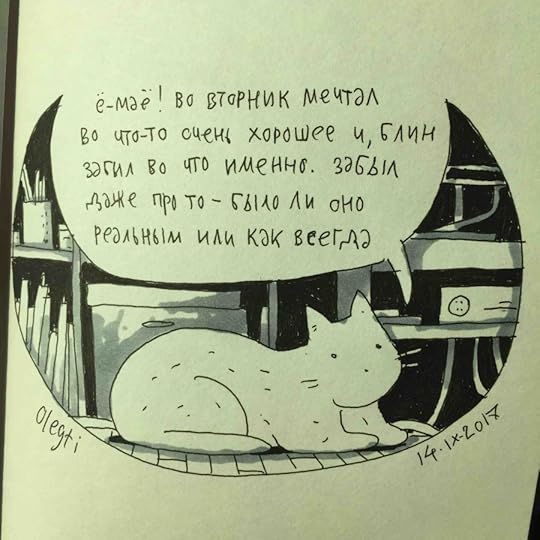 ё-маё! во вторник мечтал
во что-то очень хорошее и, блин
забыл во что именно. забыл
даже про то - было ли оно
реальным или как всегда
Olegti
14.IX-2017